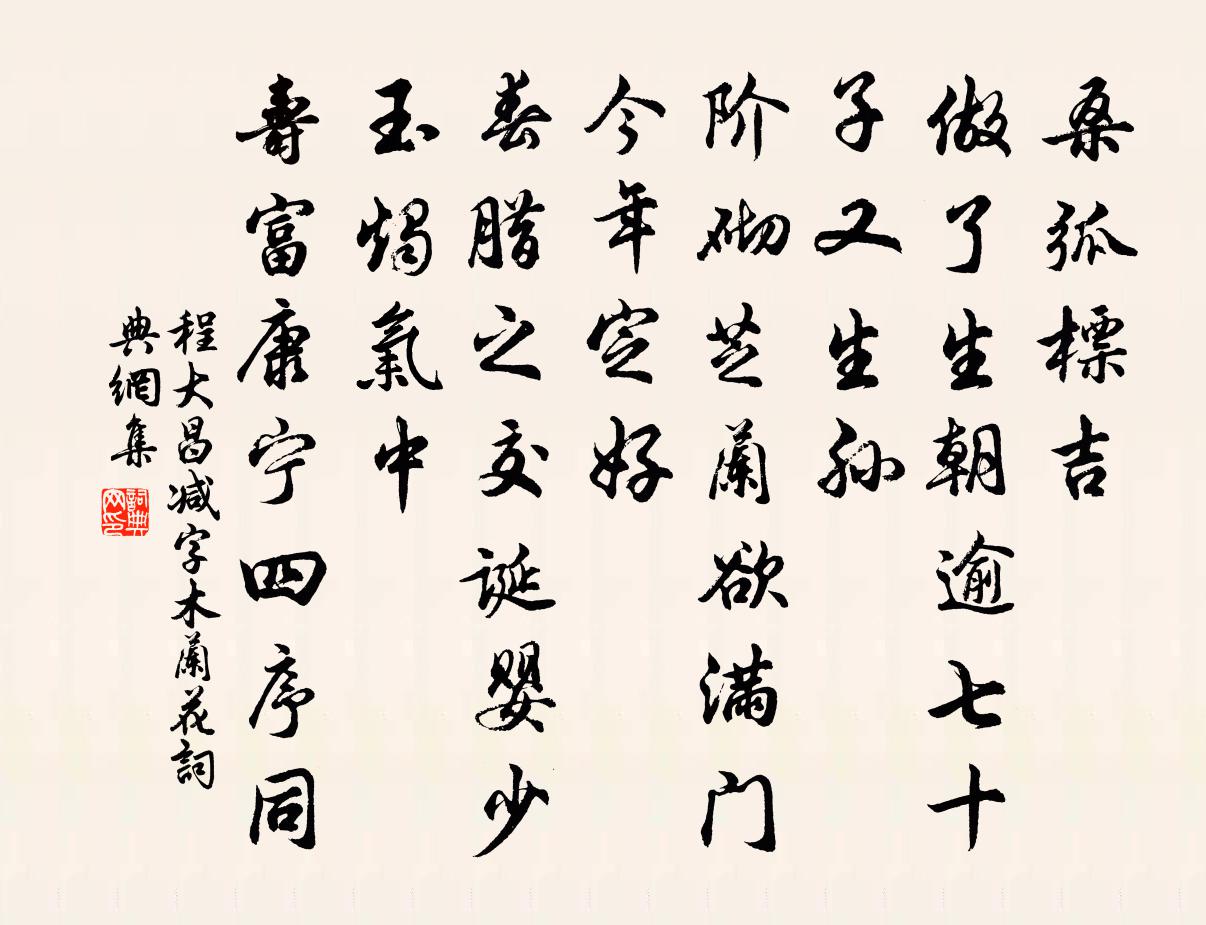 桑弧標吉
做了生朝逾七十
子又生孙
阶砌芝蘭欲满门
今年定好
春腊之交诞婴少
玉燭氣中
壽富康宁四序同
程大昌减字木蘭花詞
典網集
詞典
网印